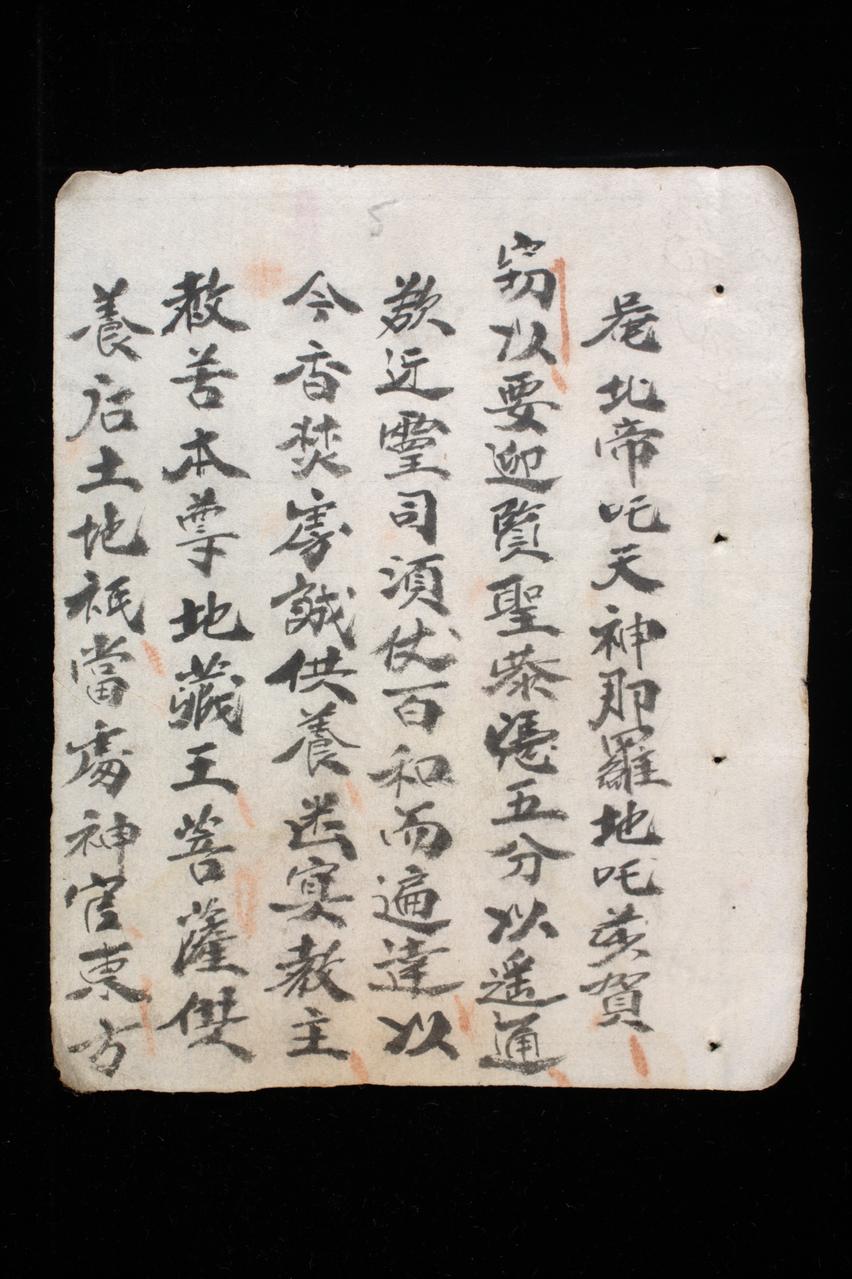 唵北帝吒天神那羅地吒莎賀
窃以要迎賢聖叅憑五分以遥通
欲近靈司須仗百和而遍達以
今香焚寡誠供養迷冥教主
救苦本尊地藏王菩薩供
養后土地祇當處神官東方